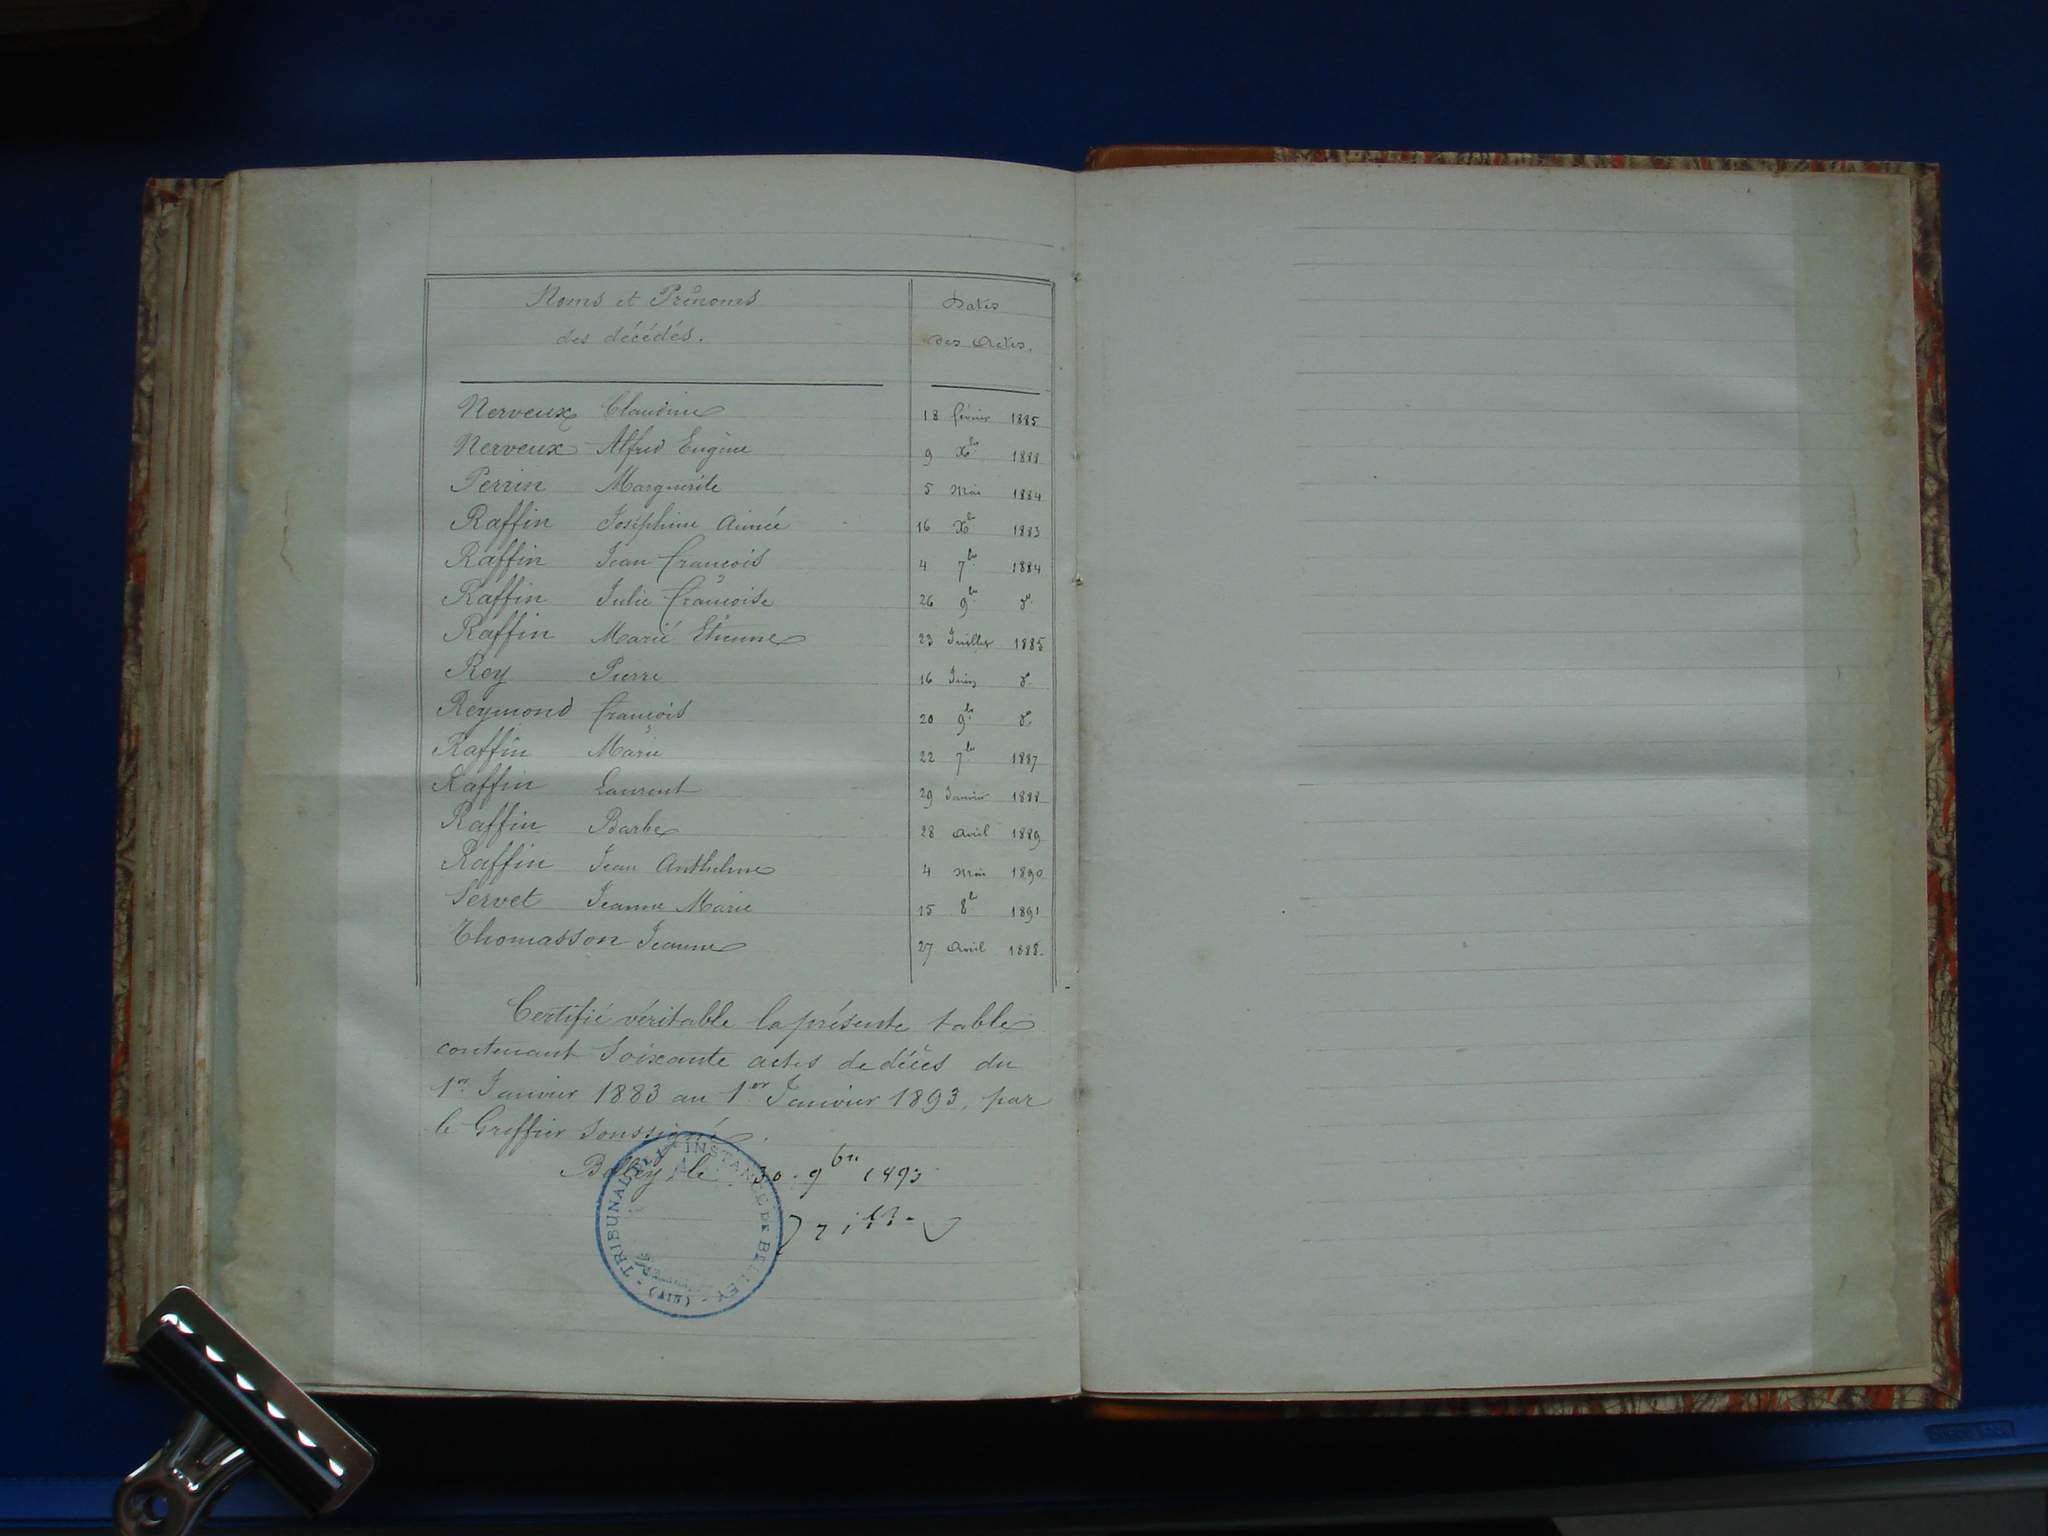 Noms et Prénoms Dates
des décédés. des Actes.
Nerveux Claudine 18 février 1885
Nerveux Alfred Eugène 9 Xbre 1888
Perrin Marguerite 5 Mai 1884
Raffin Joséphine Aimée 16 Xbre 1883
Raffin Jean François 4 7bre 1884
Raffin Julie Françoise 26 9bre do
Raffin Marie Etienne 23 Juillet 1885
Rey Pierre 16 Juin do
Reymond François 20 9bre do
Raffin Marie 22 7bre 1887
Raffin Laurent 29 Janvier 1888
Raffin Barbe 28 Avril 1889
Raffin Jean Anthelme 4 Mai 1890
Servet Jeanne Marie 15 8bre 1891
Thomasson Jeanne 27 Avril 1888
Certifié véritable la présente table
contenant soixante actes de décès du
1er Janvier 1883 au 1er Janvier 1893, par
le Greffier soussigné.
Belley, le 30. 9bre 1893
TRIBUNAL INSTANCE DE BELLEY - (AIN) -